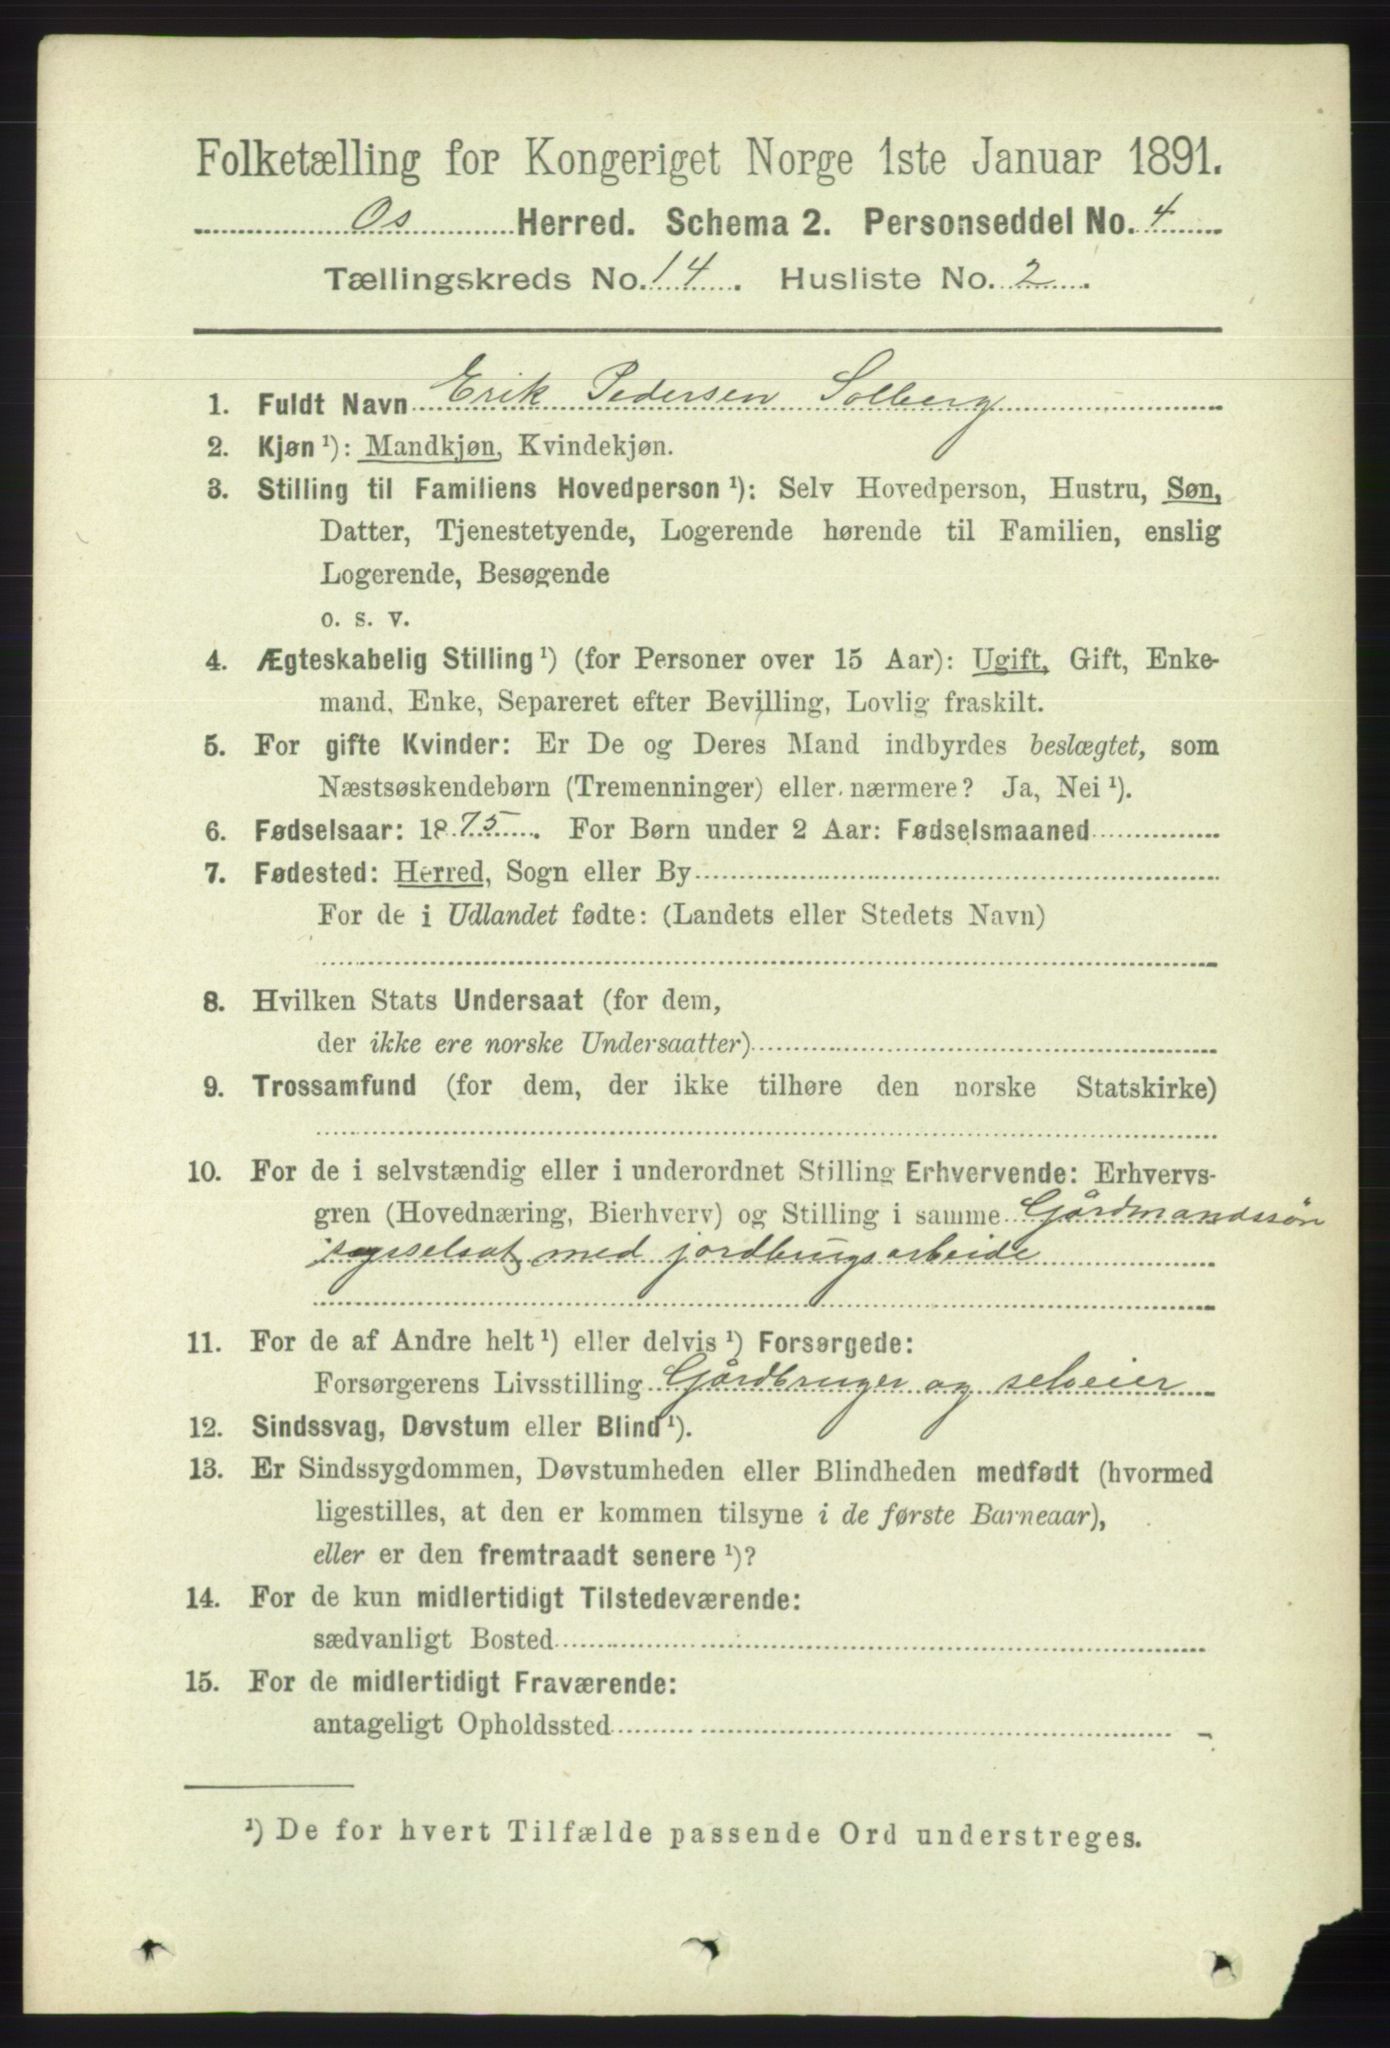 Folketælling for Kongeriget Norge 1ste Januar 1891.
Os Herred. Schema 2. Personseddel No. 4
Tællingskreds No. 14. Husliste No. 2
1. Fuldt Navn Erik Pedersen Solberg
2. Kjøn ¹): Mandkjøn, Kvindekjøn.
3. Stilling til Familiens Hovedperson ¹): Selv Hovedperson, Hustru, Søn,
Datter, Tjenestetyende, Logerende hørende til Familien, enslig
Logerende, Besøgende
o. s. v.
4. Ægteskabelig Stilling ¹) (for Personer over 15 Aar): Ugift, Gift, Enke-
mand, Enke, Separeret efter Bevilling, Lovlig fraskilt.
5. For gifte Kvinder: Er De og Deres Mand indbyrdes beslægtet, som
Næstsøskendebørn (Tremenninger) eller nærmere? Ja, Nei ¹).
6. Fødselsaar: 1875. For Børn under 2 Aar: Fødselsmaaned
7. Fødested: Herred, Sogn eller By
For de i Udlandet fødte: (Landets eller Stedets Navn)
8. Hvilken Stats Undersaat (for dem,
der ikke ere norske Undersaatter)
9. Trossamfund (for dem, der ikke tilhøre den norske Statskirke)
10. For de i selvstændig eller i underordnet Stilling Erhvervende: Erhvervs-
gren (Hovednæring, Bierhverv) og Stilling i samme Gårdmandssøn
sysselsat med jordbrugsarbeide
11. For de af Andre helt ¹) eller delvis ¹) Forsørgede:
Forsørgerens Livsstilling Gårdbruger og selveier
12. Sindssvag, Døvstum eller Blind ¹).
13. Er Sindssygdommen, Døvstumheden eller Blindheden medfødt (hvormed
ligestilles, at den er kommen tilsyne i de første Barneaar),
eller er den fremtraadt senere ¹)?
14. For de kun midlertidigt Tilstedeværende:
sædvanligt Bosted
15. For de midlertidigt Fraværende:
antageligt Opholdssted
¹) De for hvert Tilfælde passende Ord understreges.